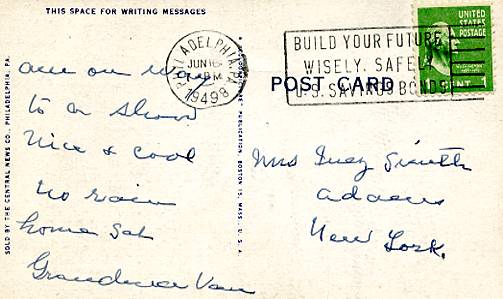 THIS SPACE FOR WRITING MESSAGES
are on way
to a show
nice & cool
no rain
home Sat
Grandma Van
SOLD BY THE CENTRAL NEWS CO., PHILADELPHIA, PA.
PUBLICATION, BOSTON, MASS., U.S.A.
PHILADELPHIA, PA.
JUN 16
PM
1949
BUILD YOUR FUTURE
WISELY, SAFELY
U.S. SAVINGS BONDS
POST CARD
UNITED
STATES
POSTAGE
1
Mrs Inez Smith
Adams
New York.